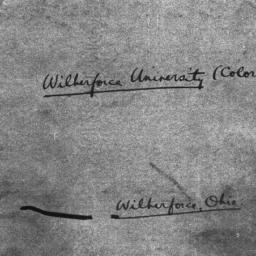 Wilberforce University (Color
Wilberforce, Ohio